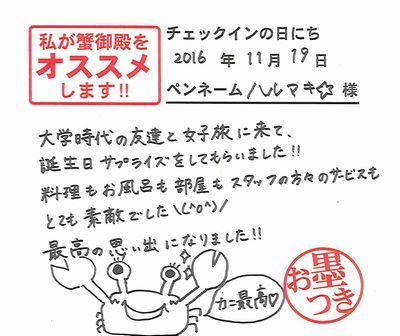 私が蟹御殿を
オススメ
します!!
チェックインの日にち
2016 年 11月 19日
ペンネーム ハルマキ☆ 様
大学時代の友達と女子旅に来て、
誕生日サプライズをしてもらいました!!
料理もお風呂も部屋もスタッフの方々のサービスも
とても素敵でした\(^o^)/
最高の思い出になりました!!
カニ最高♡
お墨つき